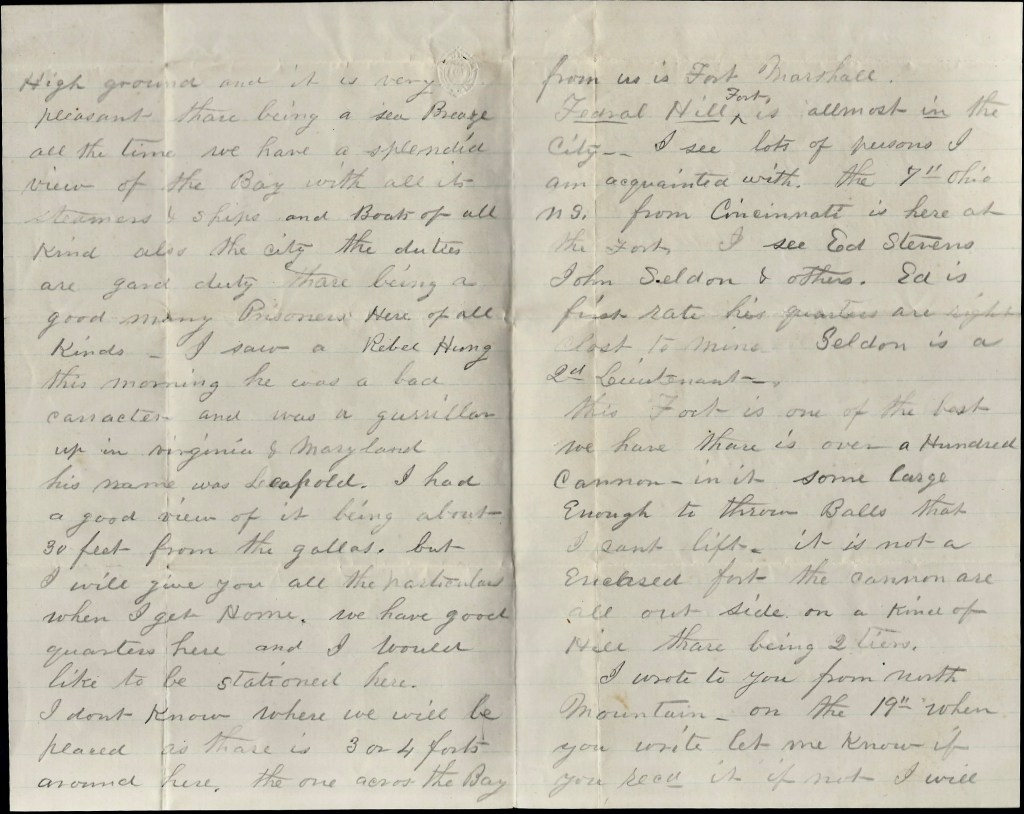 High ground and it is very
pleasant thare being a sea Breaze
all the time we have a splendid
view of the Bay with all its
steamers & ships and Boats of all
Kind also the city the duties
are gard duty thare being a
good many Prisoners Here of all
Kinds - I saw a Rebel Hung
this morning he was a bad
carracter and was a gurrillar
up in virginia & Maryland
his name was Leapold. I had
a good view of it being about
30 feet from the gallas. but
I will give you all the particulars
when I get Home. we have good
quarters here and I would
like to be stationed here.
I dont Know where we will be
placed as thare is 3 or 4 forts
around here. the one acros the Bay
from us is Fort Marshall.
Fedral Hill ^ Fort, is allmost in the
City-- I see lots of persons I
am acquainted with. the 7" Ohio
N.G. from Cincinnati is here at
the Fort I see Ed Stevens
John Seldon & others. Ed is
first rate his quarters are right
clost to mine Seldon is a
2d Lieutenant-.
this Fort is one of the best
we have thare is over a Hundred
Cannon - in it some large
Enough to throw Balls that
I cant lift - it is not a
Enclased fort the cannon are
all out side on a Kind of
Hill thare being 2 tiers.
I wrote to you from north
Mountain - on the 19" when
you write let me Know if
you recd it if not I will